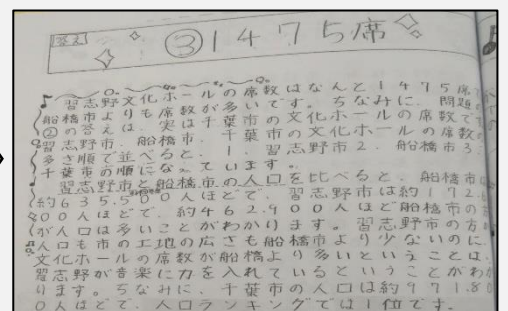 答え ③1475席
習志野文化ホールの席数はなんと1475席で
船橋市よりも席数が多いです。ちなみに、問題の
②の答えは、実は千葉市の文化ホールの席数です
習志野市、船橋市、千葉市の文化ホールの席数の
多さ順で並べると、1、習志野市2、船橋市3、
千葉市の順になっています。
習志野市と船橋市の人口を比べると、船橋市は
約635.500人ほどで、習志野市は約172.6
00人ほどで、約462.900人ほど船橋市の方
が人口は多いことがわかります。習志野市の方が
人口も市の土地の広さも船橋市より少ないのに、
文化ホールの席数が船橋より多いということは、
習志野が音楽に力を入れているということがわか
ります。ちなみに、千葉市の人口は約971.80
0人ほどで、人口ランキングでは1位です。